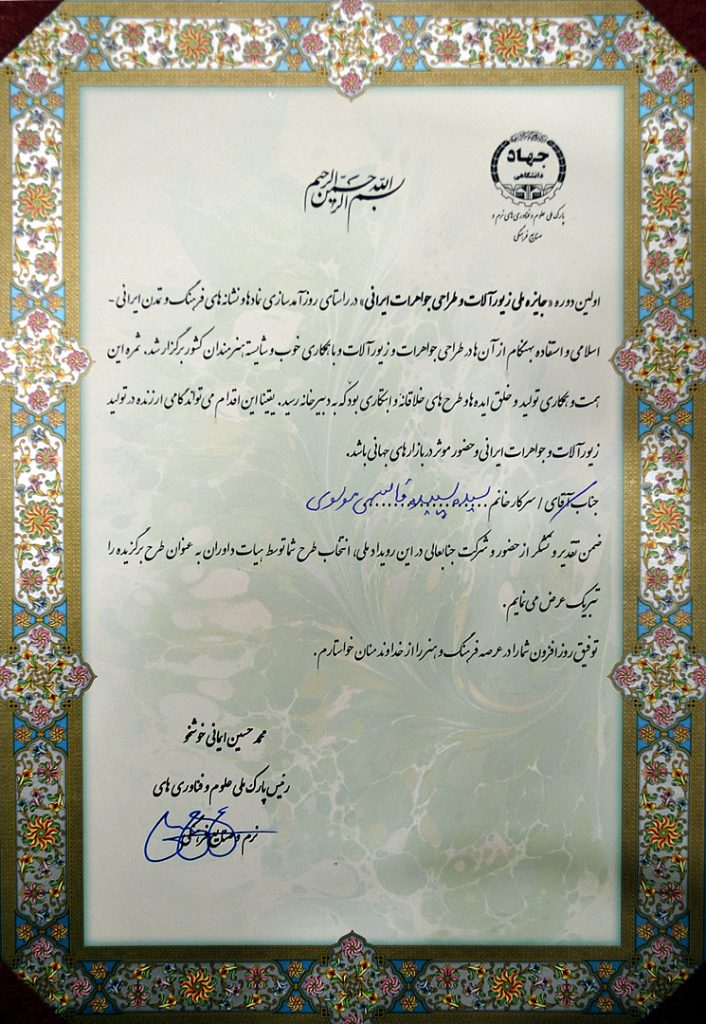 جهاد
دانشگاهی
پارک ملی علوم و فناوری های نرم و
صنایع فرهنگی
بسم الله الرحمن الرحیم
اولین دوره «جایزه ملی زیورآلات و طراحی جواهرات ایرانی» در راستای روزآمدسازی نمادها و نشانه های فرهنگ و تمدن ایرانی -
اسلامی و استفاده بهنگام از آن ها در طراحی جواهرات و زیورآلات و با همکاری خوب و شایسته هنرمندان کشور برگزار شد. ثمره این
همت و همکاری تولید و خلق ایده ها و طرح های خلاقانه و ابتکاری بود که به دبیرخانه رسید. یقینا این اقدام می تواند گامی ارزنده در تولید
زیورآلات و جواهرات ایرانی و حضور موثر در بازارهای جهانی باشد.
جناب آقای / سرکار خانم سیده سپیده قاسمی موسوی
ضمن تقدیر و تشکر از حضور و شرکت جنابعالی در این رویداد ملی، انتخاب طرح شما توسط هیات داوران به عنوان طرح برگزیده را
تبریک عرض می نمایم.
توفیق روزافزون شما را در عرصه فرهنگ و هنر را از خداوند منان خواستارم.
محمد حسین ایمانی خوشخو
رئیس پارک ملی علوم و فناوری های
نرم و صنایع فرهنگی